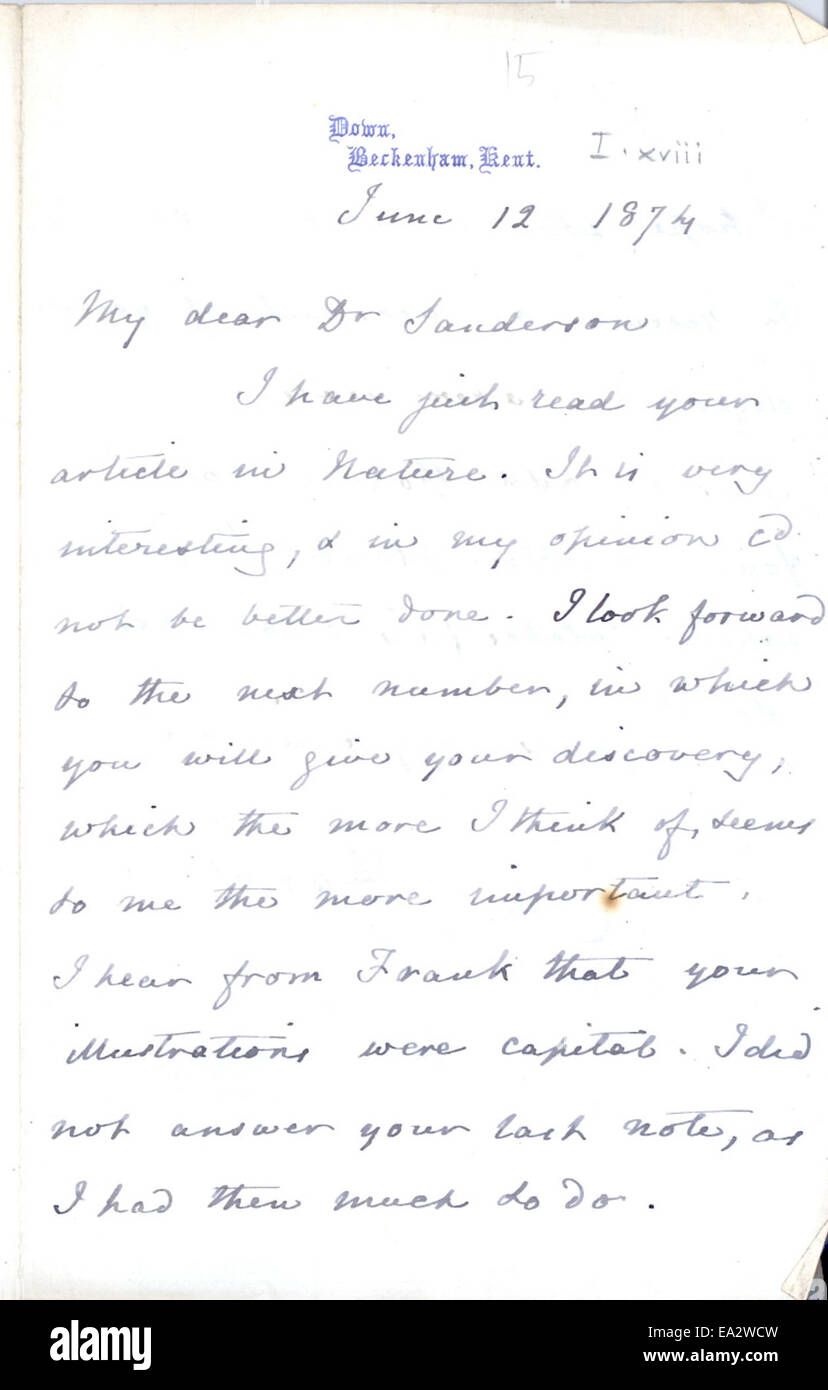 15
Down,
Beckenham, Kent.
I. xviii
June 12 1874
My dear Dr Sanderson
I have just read your
article in Nature. It is very
interesting, & in my opinion cd
not be better done. I look forward
to the next number, in which
you will give your discovery,
which the more I think of, seems
to me the more important.
I hear from Frank that your
illustrations were capital. I did
not answer your last note, as
I had then much to do.
alamy
Image ID: EA2WCW
www.alamy.com